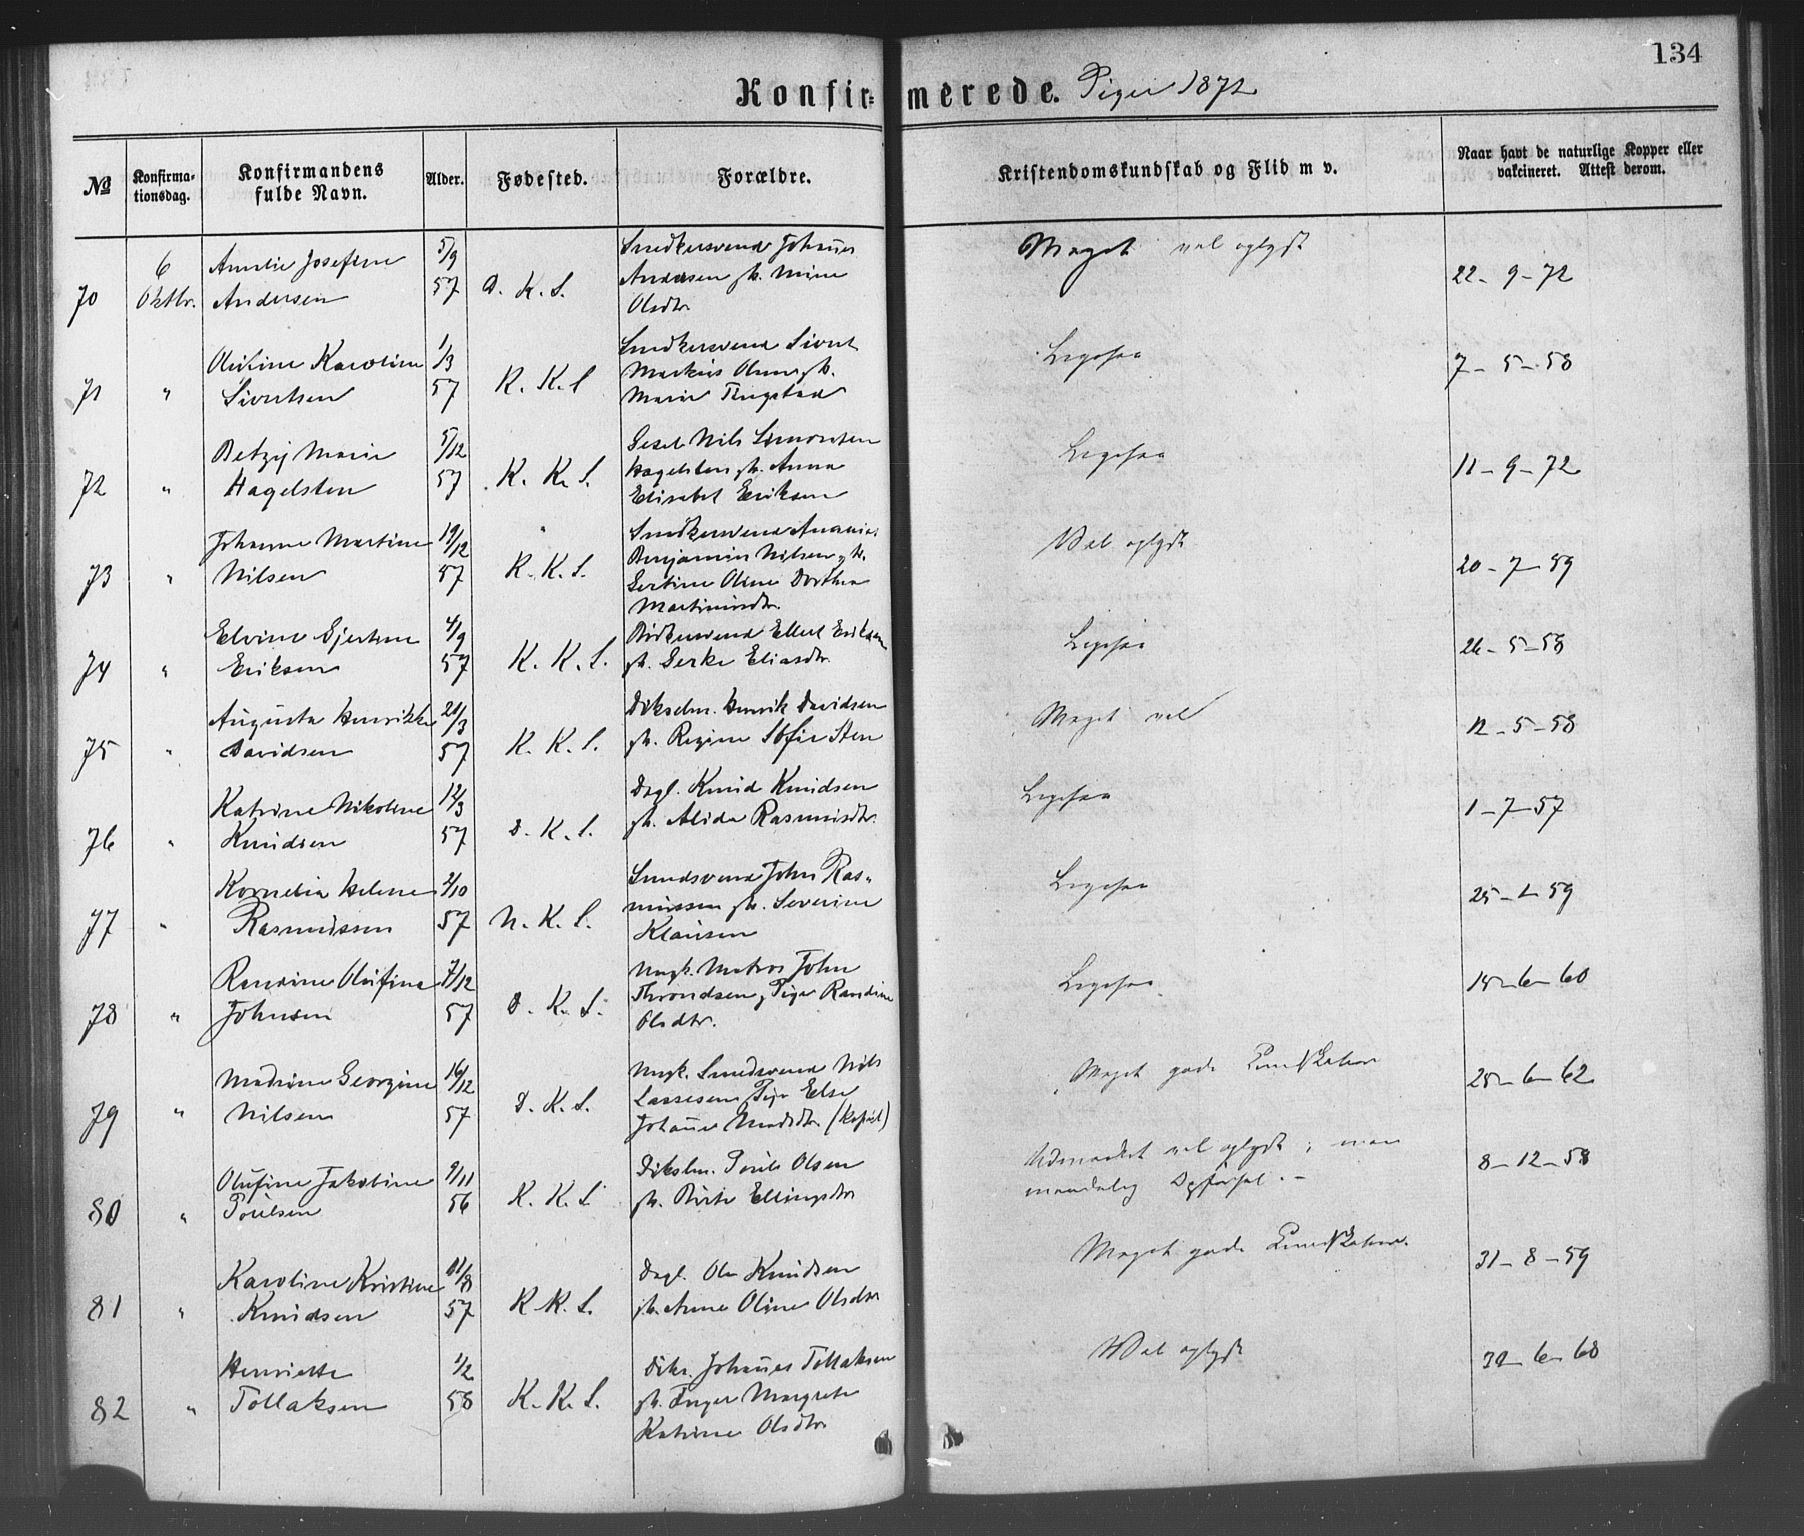 134
Konfirmerede. Piger 1872
No
Konfirmationsdag.
Konfirmandens fulde Navn.
Alder.
Fødested.
Forældre.
Kristendomskundskab og Flid m v.
Naar havt de naturlige Kopper eller vakcineret. Attest derom.
70
6 Oktbr.
Amelie Josefine
Andersen
5/9 57
D. K. S.
Snedkersvend Johannes
Andersen gh. Mine
Olsdtr.
Meget vel oplyst
22-9-72
71
"
Olufine Karoline
Sivertsen
1/3 57
K. K. S
Snedkersvend Sivert
Markus Olsen gh.
Marie Tingstad
Ligesaa
7-5-58
72
"
Betzy Marie
Hagelsten
5/12 57
K. K. S.
Gesel Nils Simonsen
Hagelsten gh. Anna
Elisabet Eriksen
Ligesaa
11-9-72
73
"
Johanne Martine
Nilsen
19/12 57
K. K. S.
Snedkersvend Ananias
Benjamin Nilsen gh.
Gertine Oline Dorthea
Martinusdtr.
Vel oplyst
20-7-59
74
"
Elvine Gjertine
Eriksen
4/9 57
K. K. S.
Bødkersvend Ellert Eriksen
gh. Serke Eliasdtr.
Ligesaa
26-5-58
75
"
Augusta Henrikke
Davidsen
21/3 57
K. K. S.
Dikselm. Henrik Davidsen
gh. Regine Sofie Sten
Meget vel
12-5-58
76
"
Katrine Nikoline
Knudsen
12/3 57
D. K. S.
Dagl. Knud Knudsen
gh. Alida Rasmusdtr.
Ligesaa
1-7-57
77
"
Kornelia Helene
Rasmussen
2/10 57
N. K. S.
Smedsvend John Ras-
mussen gh. Severine
Klausen
Ligesaa
25-1-59
78
"
Randine Olufine
Johnsen
7/12 57
D. K. S.
Ungk. Matros John
Throndsen, Pige Randine
Olsdtr.
Ligesaa
15-6-60
79
"
Madsine Georgine
Nilsen
16/12 57
D. K. S.
Ungk. Smedsvend Nils
Lassesen Pige Else
Johanne Madsdtr.
Meget gode Kundskaber
25-6-62
80
"
Olufine Jakobine
Poulsen
9/11 56
K. K. S
Dikslm. Poul Olsen
gh. Birte Ellingsdtr
Udmærket vel oplyst; men
Opførsel. -
8-12-58
81
"
Karoline Kristine
Knudsen
11/8 57
K. K. S.
Dagl. Ole Knudsen
gh. Anne Oline Olsdtr
Meget gode Kundskaber.
31-8-59
82
"
Henriette
Tollaksen
1/2 58
K. K. S.
Diks. Johannes Tollaksen
gh. Inger Margrete
Katrine Olsdtr
Vel oplyst
30-6-60